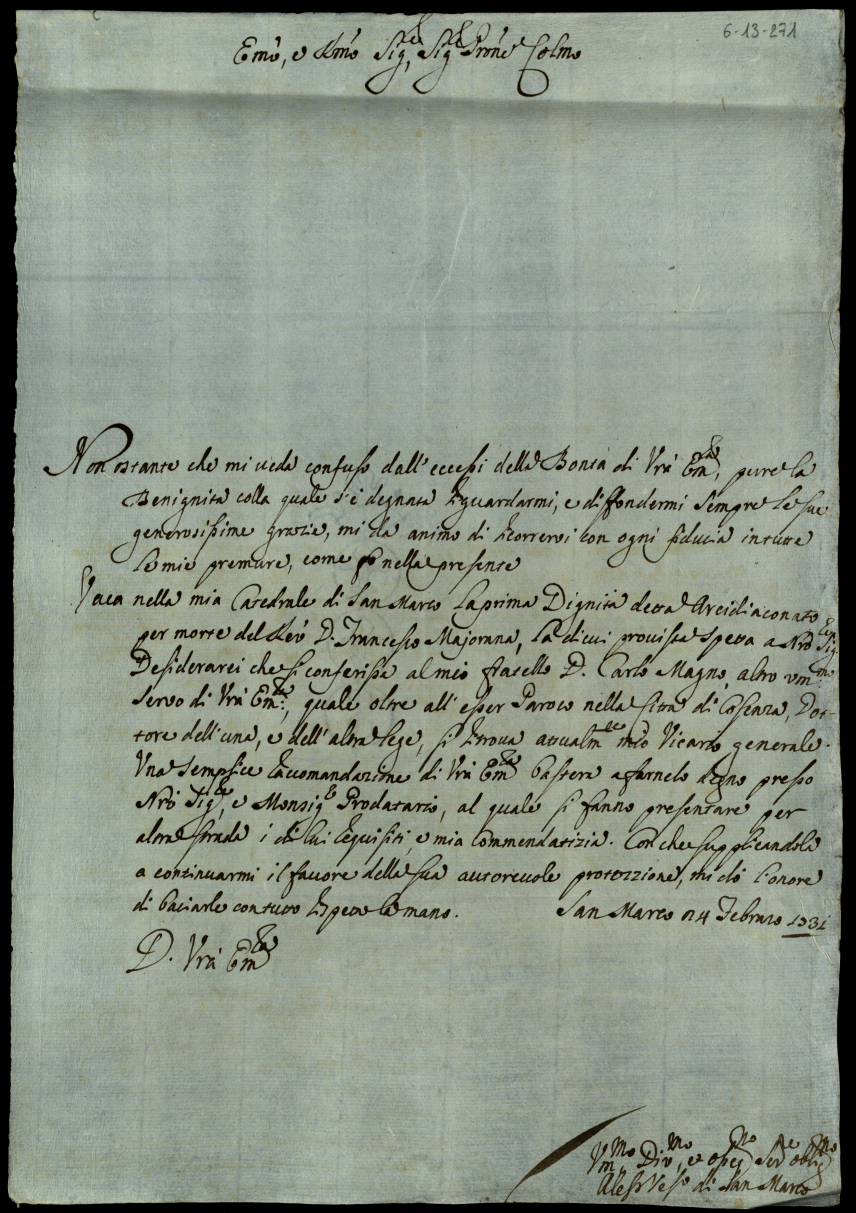 6-13-271
Emo, e Rmo Sigre, Sigre Prone Colmo
Non ostante che mi veda confuso dall'eccessi della Bontà di Vra Emza, pure la
Benignità colla quale s'è degnata riguardarmi, e diffondermi sempre le sue
generosissime grazie, mi dà animo di ricorrervi con ogni fiducia in tutte
le mie premure, come fò nella presente
Vaca nella mia Catedrale di San Marco la prima Dignità detta Arcidiaconato
per morte del Rev D. Francesco Majorana, la di cui provista spetta a Nro Sigre
Desiderarei che si conferissa al mio fratello D. Carlo Magno, altro ummo
servo di Vra Emza, quale oltre all'esser Paroco nella Città di Cosenza, Dot-
tore dell'una, e dell'altra lege, si ritrova attualmte mio Vicario generale.
Una semplice raccomandazione di Vra Emza bastera a farnelo degno presso
Nro Sigre, e Monsigre Prodatario, al quale si fanno presentare per
altra strada i di lui requisiti, e mia commendatizia. Con che supplicandola
a continuarmi il favore della sua autorevole protezzione, mi dò l'onore
di baciarle con tutto rispetto le mano. San Marco 14 Febraro 1731
D. Vra Emza
Ummo Divmo, et obblmo
Aless Vesco di San Marco